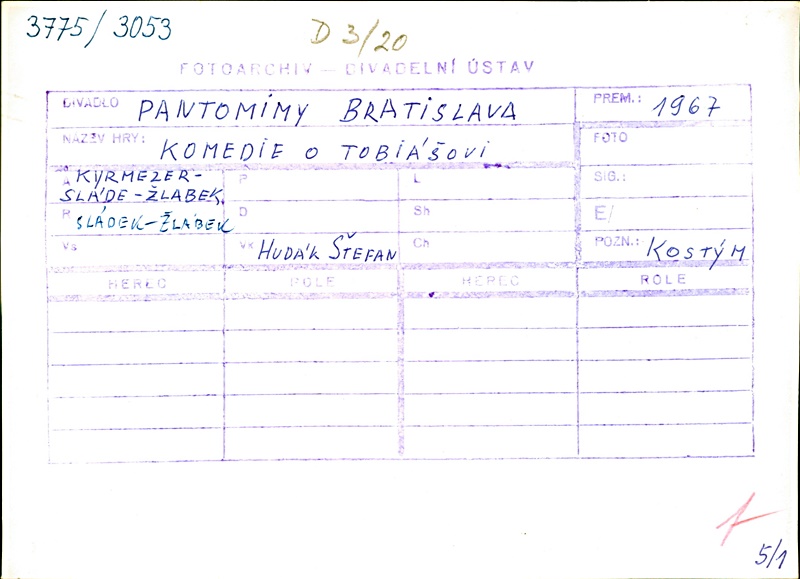 3775/3053
D 3/20
FOTOARCHIV — DIVADELNÍ ÚSTAV
DIVADLO PANTOMÍMY BRATISLAVA PREM.: 1967
NÁZEV HRY: KOMEDIE O TOBIÁŠOVI FOTO
A KYRMEZER- P L SIG.:
SLÁDE-ŽLABEK
R SLÁDEK-ŽLÁBEK D Sh E/
Vs VK HUDÁK ŠTEFAN Ch POZN.: KOSTÝM
HEREC ROLE HEREC ROLE
5/1